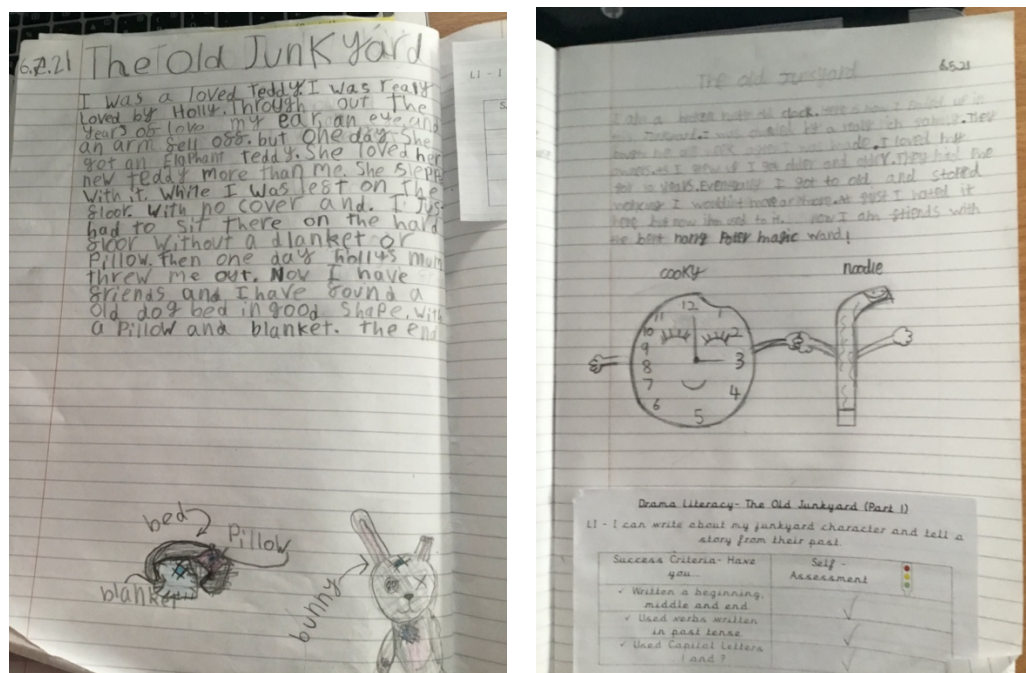 6.2.21 The Old Junkyard
I was a loved teddy. I was realy
loved by Holly. Through out the
years of love my ear, an eye and
an arm fell off. but one day she
got an Elaphant teddy. She loved her
new teddy more than me. She sleeps
with it. While I was left on the
floor. With no cover and. I jus
had to sit there on the hard
floor without a dlanket or
Pillow. then one day hollys mum
threw me out. Now I have
friends and I have found a
old dog bed in good shape. with
a Pillow and blanket. the end
bed
Pillow
blanket
bunny
LI - I
The old Junkyard 6.5.21
I am a broken clock. Here is how I ended up in
the Junkyard. I was owned by a family. They
I loved
as I got older and older. They had me
for 10 years. I got to old and stoped
working I At first I hated it
here but now i'm used to it. now I am friends with
the best harry Potter magic wand!
cooky
noodle
12
11 1
10 2
9 3
8
7 4
6 5
Drama Literacy- The Old Junkyard (Part 1)
LI - I can write about my junkyard character and tell a
story from their past.
Success Criteria- Have
you...
Self -
Assessment
✓ Written a beginning,
middle and end
✓ Used verbs written
in past tense
✓ Used Capital Letters
! and ?